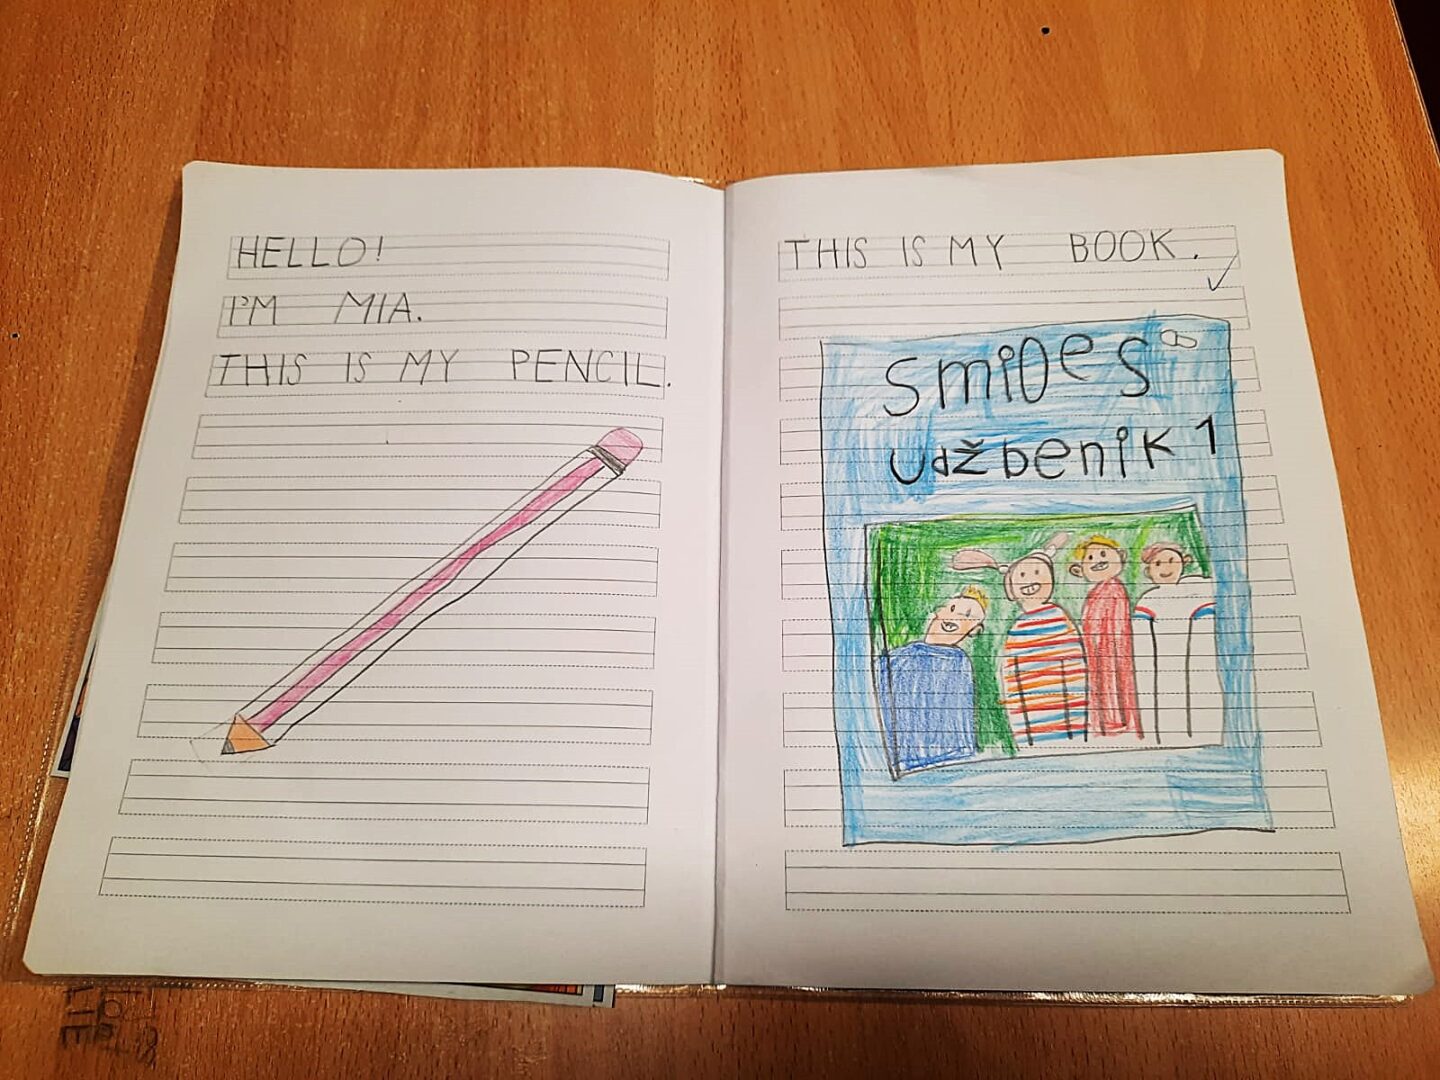 HELLO!
I'M MIA.
THIS IS MY PENCIL.
THIS IS MY BOOK.
Smiles
Udžbenik 1